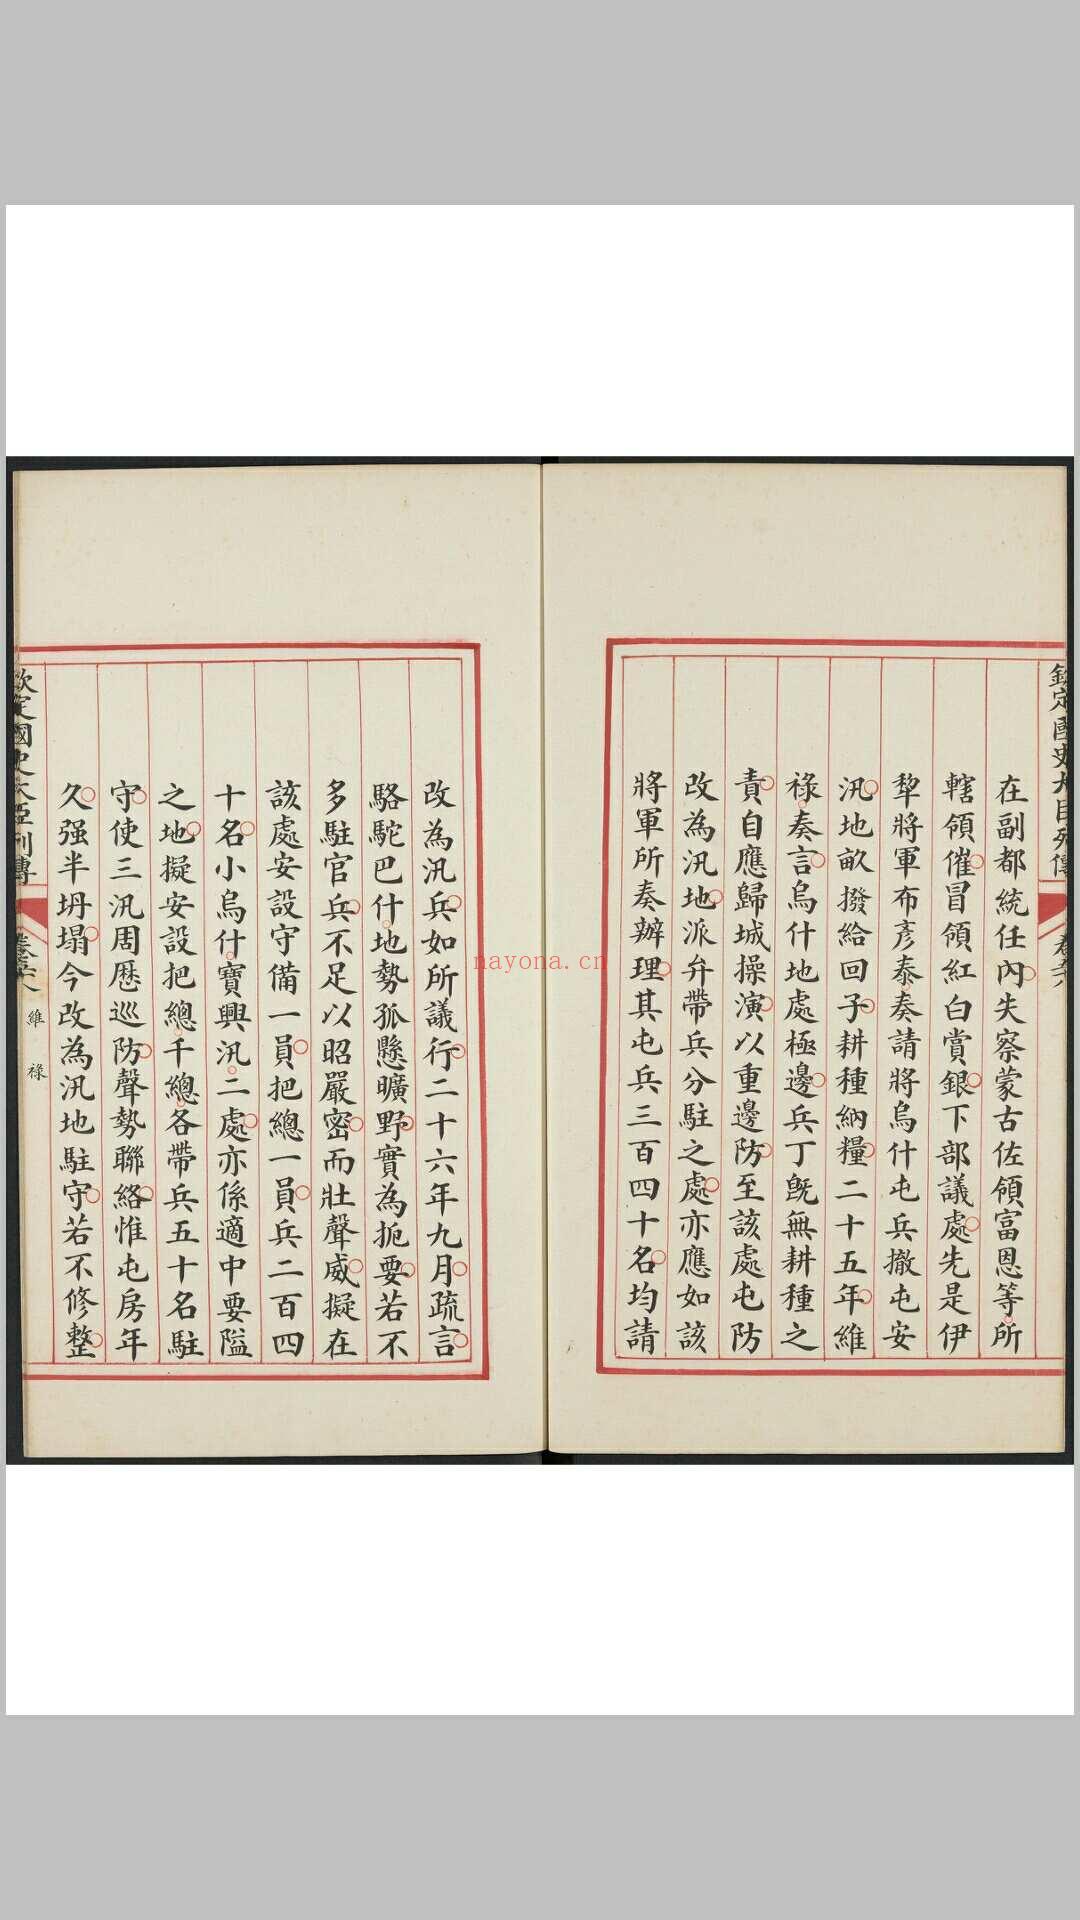 欽定國史大臣列傳
在副都統任內失察蒙古佐領富恩等所
轄領催冒領紅白賞銀下部議處先是伊
犂將軍布彥泰奏請將烏什屯兵撤屯安
汛地畝撥給回子耕種納糧二十五年維
祿奏言烏什地處極邊兵丁旣無耕種之
責自應歸城操演以重邊防至該處屯防
改為汛地派弁帶兵分駐之處亦應如該
將軍所奏辦理其屯兵三百四十名均請
改為汛兵如所議行二十六年九月疏言
駱駝巴什地勢孤懸曠野實為扼要若不
多駐官兵不足以昭嚴密而壯聲威擬在
該處安設守備一員把總一員兵二百四
十名小烏什寶興汛二處亦係適中要隘
之地擬安設把總千總各帶兵五十名駐
守使三汛周歷巡防聲勢聯絡惟屯房年
久强半坍塌今改為汛地駐守若不修整
欽定國史大臣列傳
維祿
nayona.cn